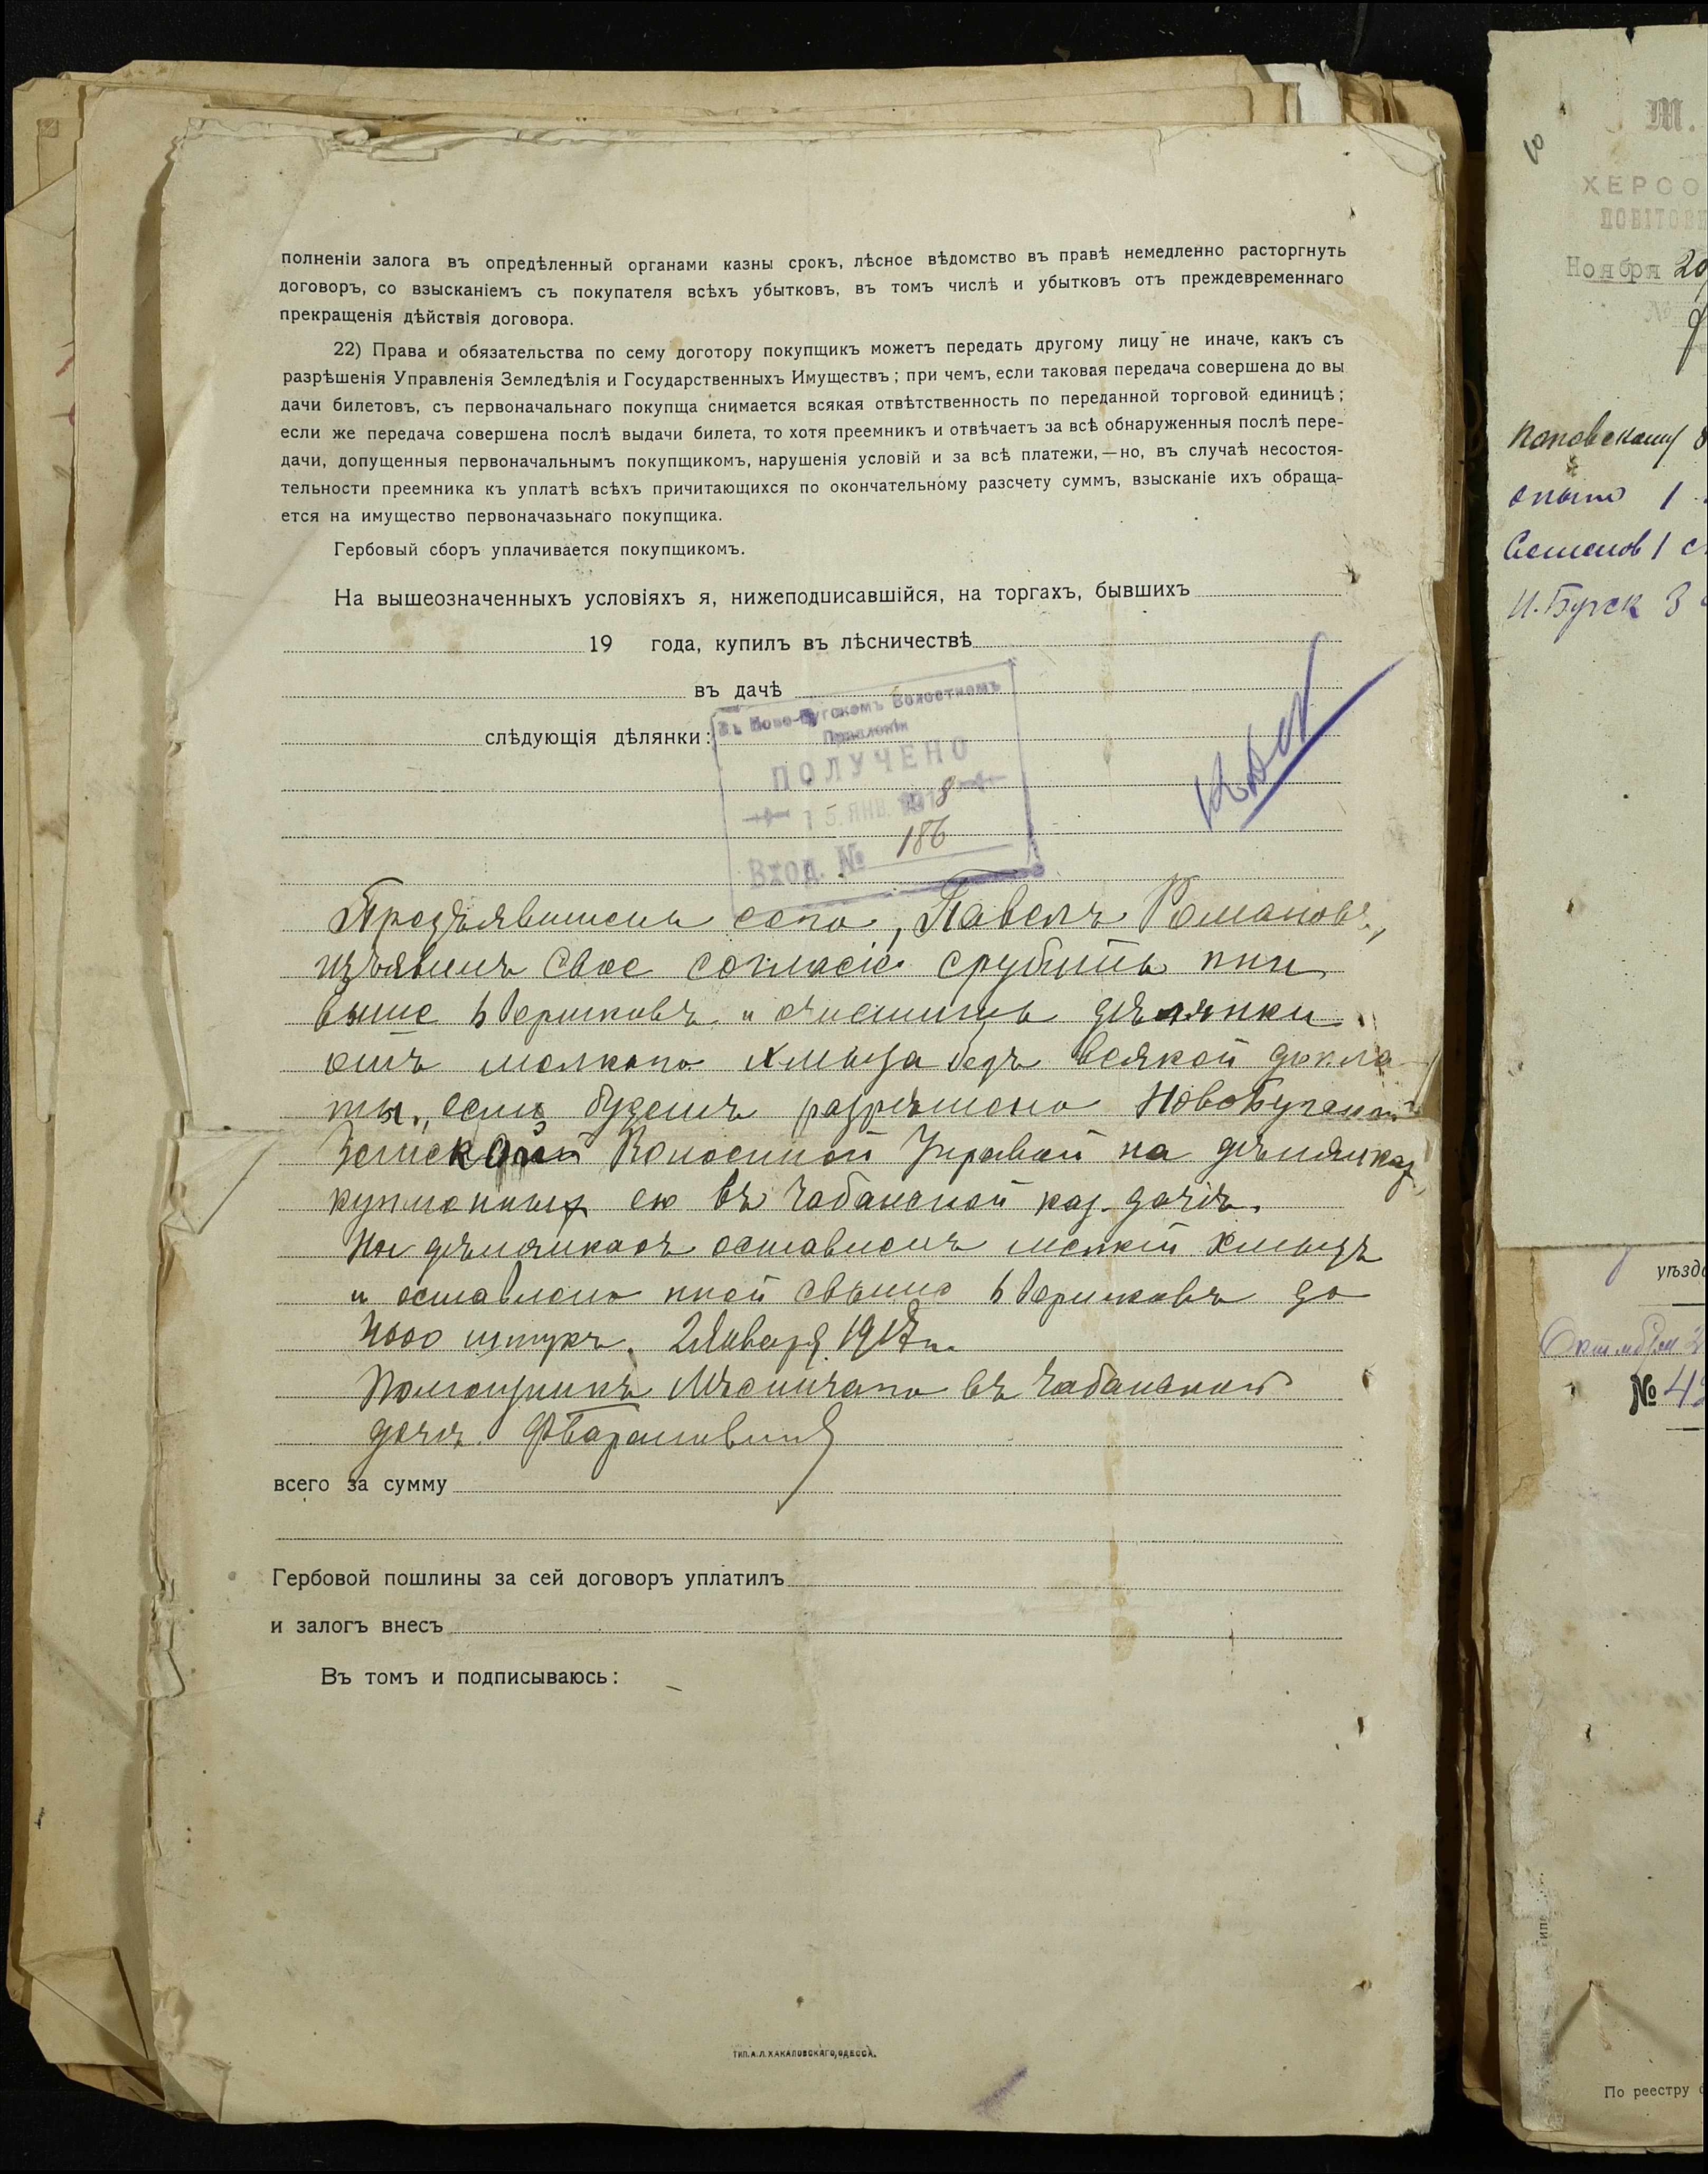 полненіи залога въ опредѣленный органами казны срокъ, лѣсное вѣдомство въ правѣ немедленно расторгнуть
договоръ, со взысканіемъ съ покупателя всѣхъ убытковъ, въ томъ числѣ и убытковъ отъ преждевременнаго
прекращенія дѣйствія договора.
22) Права и обязательства по сему доготору покупщикъ можетъ передать другому лицу не иначе, какъ съ
разрѣшенія Управленія Земледѣлія и Государственныхъ Имуществъ; при чемъ, если таковая передача совершена до вы
дачи билетовъ, съ первоначальнаго покупща снимается всякая отвѣтственность по переданной торговой единицѣ;
если же передача совершена послѣ выдачи билета, то хотя преемникъ и отвѣчаетъ за всѣ обнаруженныя послѣ пере-
дачи, допущенныя первоначальнымъ покупщикомъ, нарушенія условій и за всѣ платежи,—но, въ случаѣ несостоя-
тельности преемника къ уплатѣ всѣхъ причитающихся по окончательному разсчету суммъ, взысканіе ихъ обраща-
ется на имущество первоначазьнаго покупщика.
Гербовый сборъ уплачивается покупщикомъ.
На вышеозначенныхъ условіяхъ я, нижеподписавшійся, на торгахъ, бывшихъ
19 года, купилъ въ лѣсничествѣ
въ дачѣ
слѣдующія дѣлянки:
Въ Ново-Бугскомъ Волостномъ
Правленіи
ПОЛУЧЕНО
15. ЯНВ. 1918
Вход. № 186
Предъявитель сего, Павелъ Романовъ,
изъявилъ свое согласіе срубить пни
выше вершковъ и очистить дѣлянки
отъ мелкаго хмыза безъ всякой допла
ты, если будетъ разрѣшено Новобугской
Земской Волостной Управой на дѣлянках
купленных ею въ Чабанской каз. дачѣ.
На дѣлянкахъ оставленъ мелкій хмызъ
и оставлено пней свыше вершковъ до
4000 штукъ. 2 Января 1918 г.
Помощникъ Лѣсничаго въ Чабанской
дачѣ.
всего за сумму
Гербовой пошлины за сей договоръ уплатилъ
и залогъ внесъ
Въ томъ и подписываюсь:
ТИП. А. Л. ХАКАЛОВСКАГО, ОДЕССА.
М.
ХЕРСО
ПОВІТОВ
Ноября 20
№
Поповскому
1
1
Н.-Бугск 3
уѣзд
Октября
№ 4
По реестру